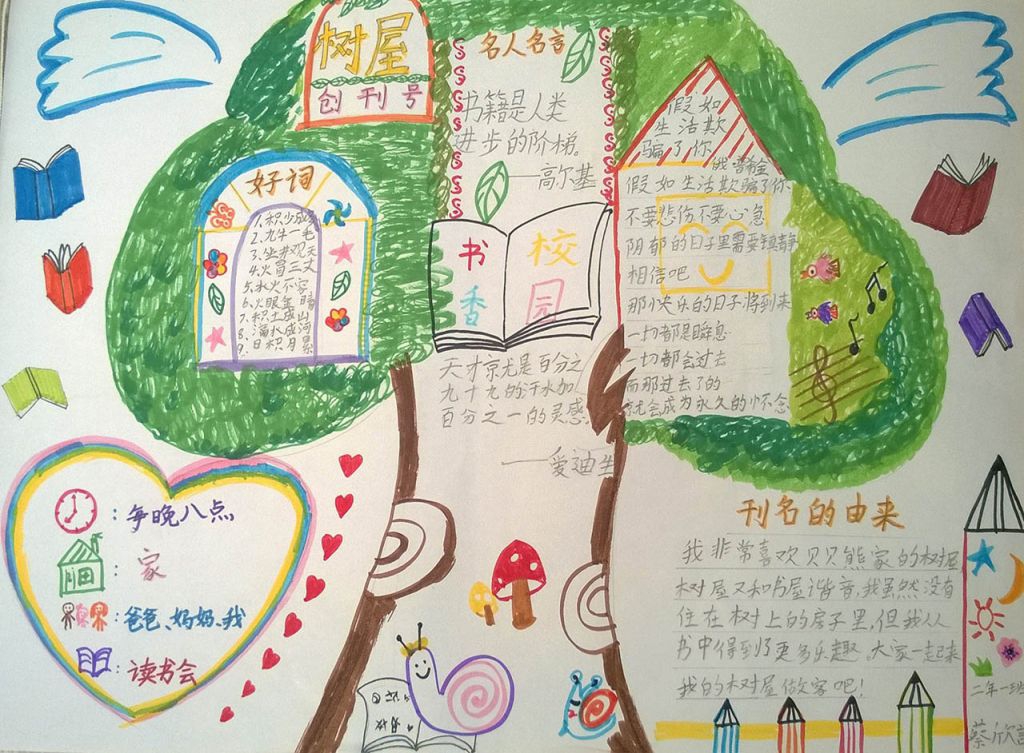 树屋
创刊号
名人名言
书籍是人类
进步的阶梯。
——高尔基
书香
校园
天才京尤是百分之
九十九的汗水加
百分之一的灵感
——爱迪生
好词
1.积少成多
2.九牛一毛
3.坐井观天
4.火冒三丈
5.水火不容
6.火眼金睛
7.积土成山
8.滴水成河
9.日积月累
假如
生活欺
骗了你
俄 普希金
假如生活欺骗了你
不要悲伤不要心急
阴郁的日子里需要镇静
相信吧
那快乐的日子将到来
一切都是瞬息
一切都会过去
而那过去了的
就会成为永久的怀念
:每晚八点
:家
:爸爸、妈妈、我
:读书会
刊名的由来
我非常喜欢贝贝熊家的树屋
树屋又和书屋谐音,我虽然没有
住在树上的房子里,但我从
书中得到了更多乐趣。大家一起来
我的树屋做客吧!
二年一班
蔡欣